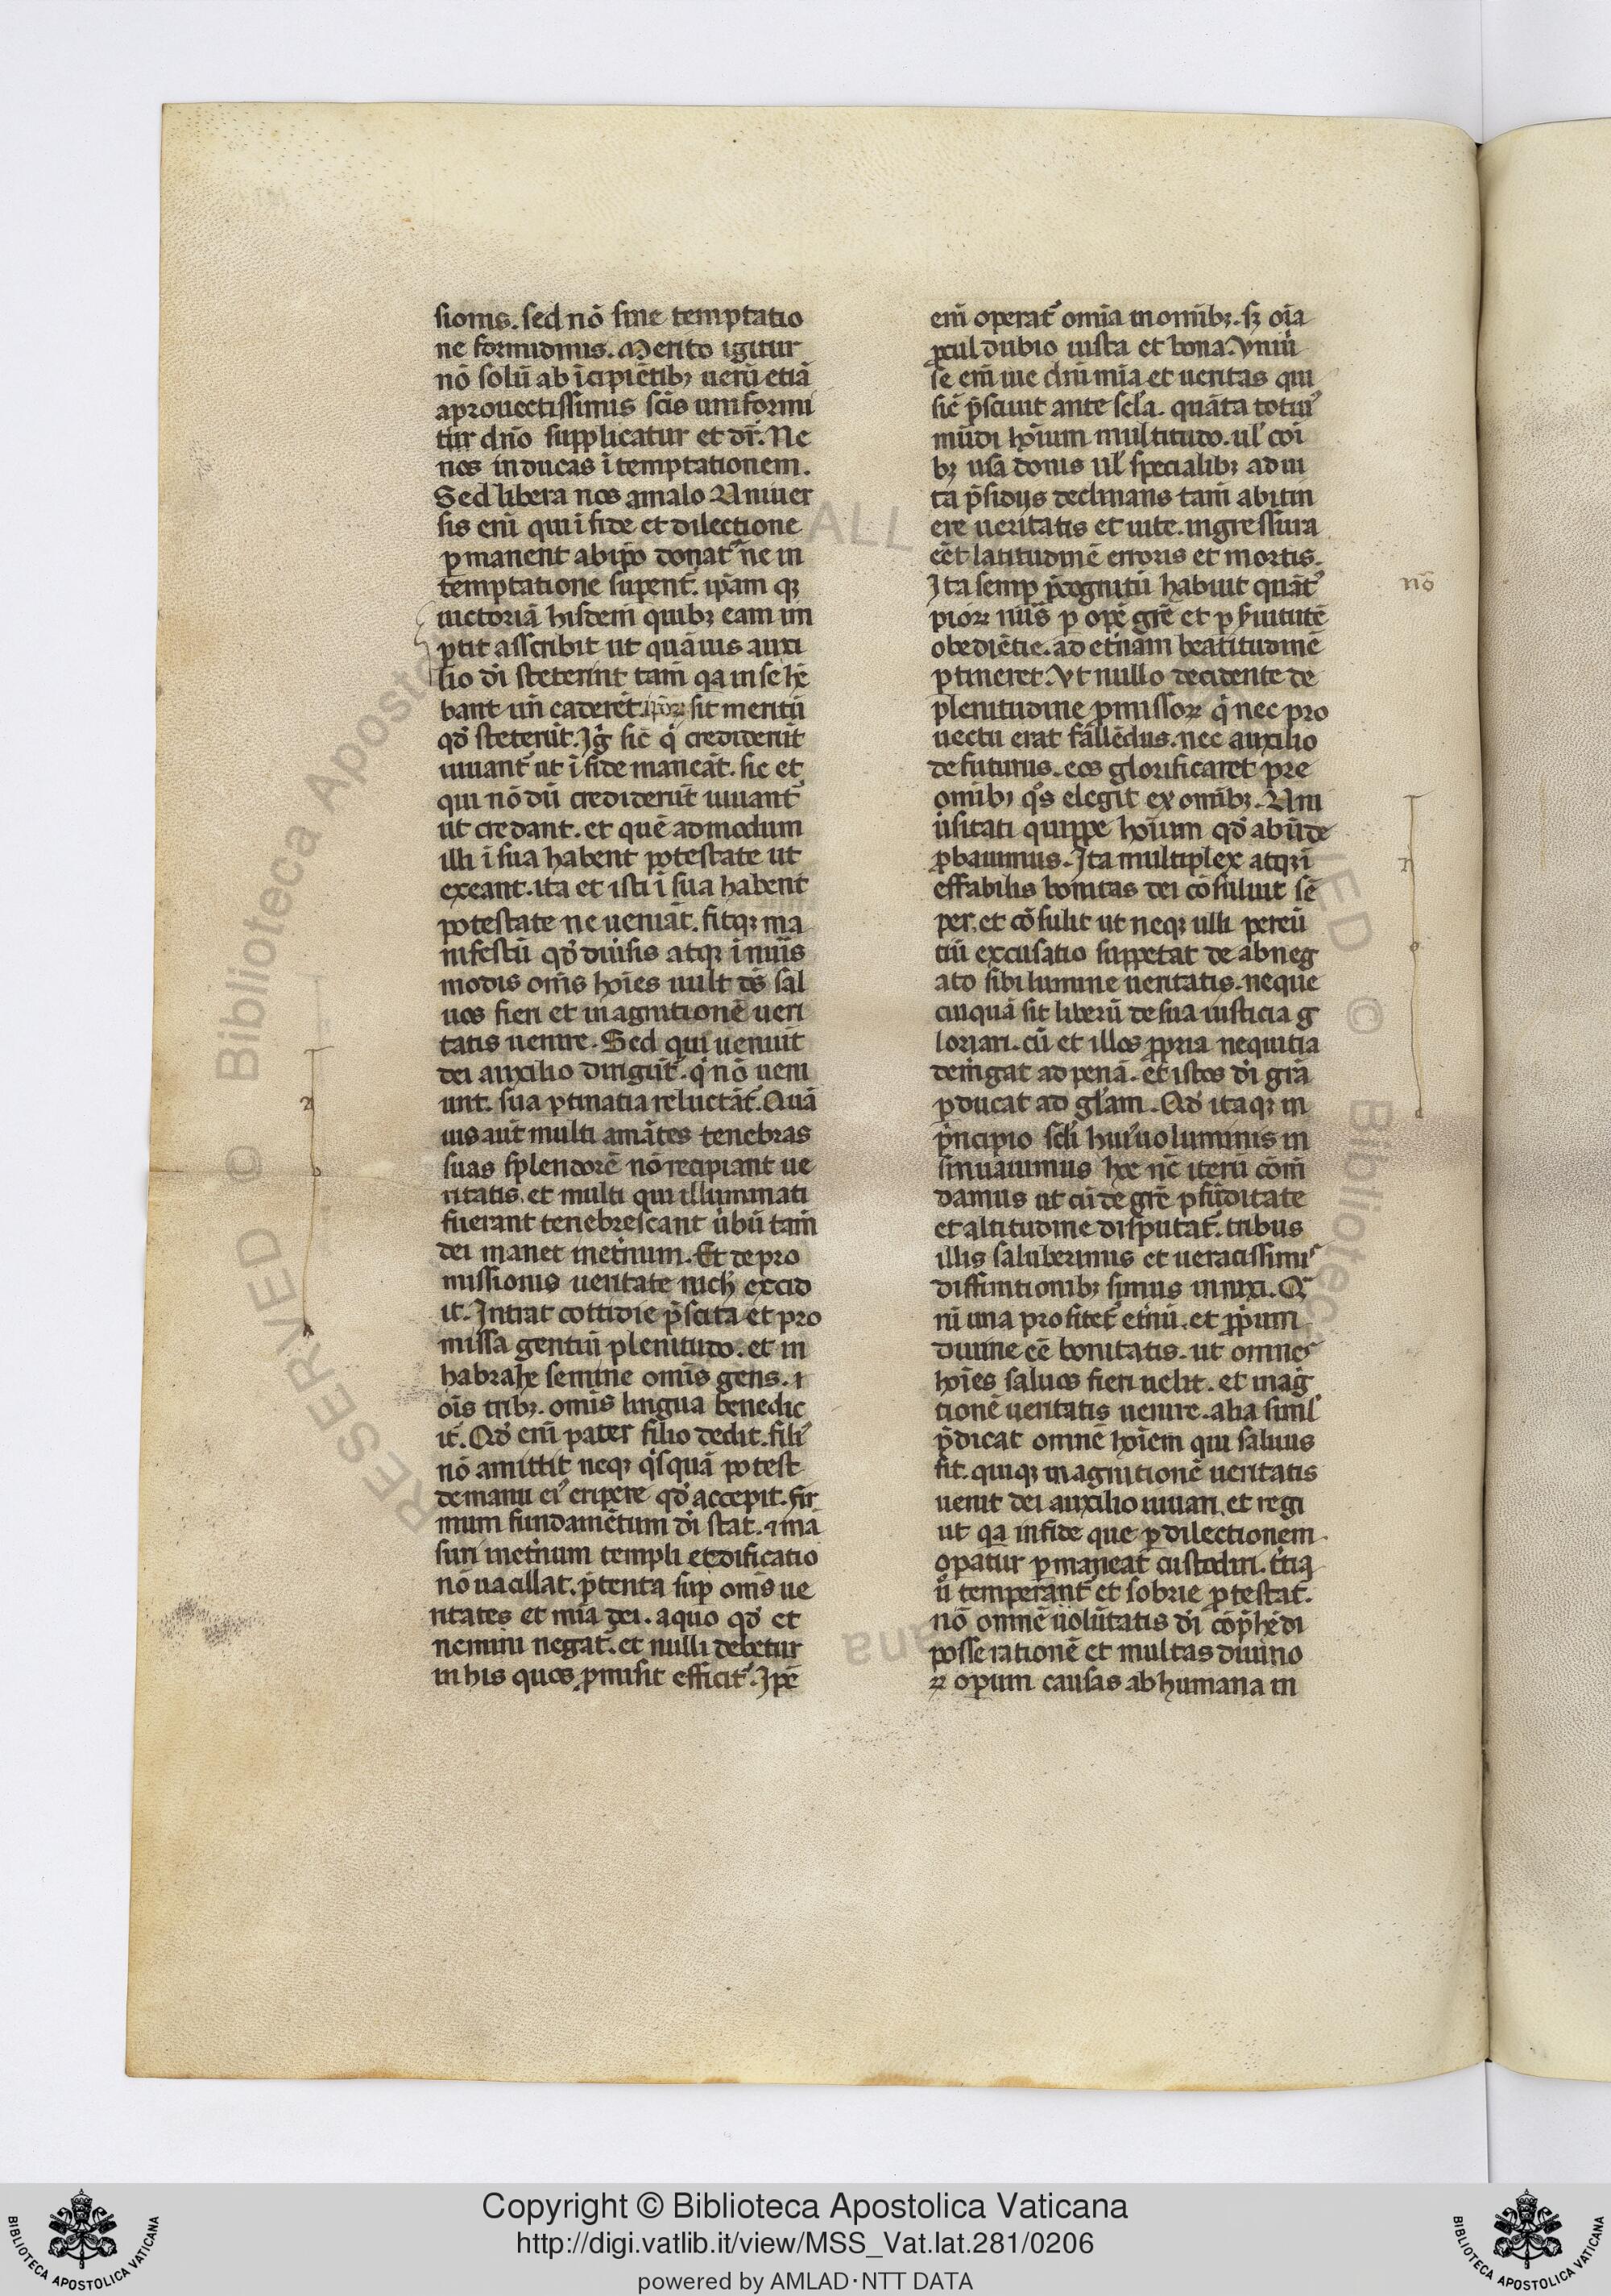 sionis. sed nō sine temptatio
ne formidinis. Merito igitur
nō solū ab īcipiētibꝫ uerū etiā
a prouectissimis scīs uniformi
tur dn̄o supplicatur et dr̄. Ne
nos inducas ī temptationem.
Sed libera nos amalo Uniuer
sis eni̅ qui ī fide et dilectione
ꝑmanent abip̄o donat᷑ ne in
temptatione suꝑent᷑. ip̄am qꝫ
uictoriā hisdem quibꝫ eam im
ꝑtit asscribit ut quāuis auxi
lio dī steterint tam̄ qa in se hē
bant un̄ caderēt. ip̄oꝝ sit meritū
qd̕ steterūt. Jgͥ sic̄ qͥ crediderūt
iuuant᷑ ut ī fide maneāt. sic et
qui nō dū crediderūt iuuant᷑
ut credant. et quē admodum
illi ī sua habent potestate ut
exeant. ita et isti ī sua habent
potestate ne ueniāt. fitqꝫ ma
nifestū qd̕ diu̕sis atqꝫ īnūīs
modis om̄s hoīes uult ds̄ sal
uos fieri et in agnitionē ueri
tatis uenire. Sed qui ueniūt
dei auxilio dirigūt᷑. qͥ nō ueni
unt. sua ꝑtinatia reluctāt᷑. Quā
uis aut̄ multi amātes tenebras
suas splendorē nō recipiant ue
ritatis. et multi qui illuminati
fuerant tenebrescant u̕bū tam̄
dei manet inet̕num. Et de pro
missionis ueritate nich̕ excid
it. Intrat cottidie p̄scita et pro
missa gentiū plenitudo. et in
habrahe semine om̄is gens. ⁊
oīs tribꝫ. om̄is lingua benedic
it᷑. Qd̕ eni̅ pater filio dedit. filiꝰ
nō amittit neqꝫ qͥsquā potest
demanu eiꝰ eripere qd̕ accepit. fir
mum fundamētum dī stat. ⁊ mā
suri inet̕num templi edificatio
nō uacillat. p̄tenta suꝑ om̄s ue
ritates et mīa dei. aquo qd̕ et
nemini negat᷑. et nulli debetur
in his quos ꝓmisit efficit᷑. Jpē
eni̅ operat᷑ om̄ia in om̄ibꝫ. sꝫ oīa
ꝓcul dubio iusta et bona. Vniu̕
se eni̅ uie dn̄i mīa et ueritas qui
sic̄ p̄sciuit ante sc̄la. quāta totiꝰ
mūdi hoīum multitudo. ul̕ coī
bꝫ usa donis ul̕ specialibꝫ adiu
ta p̄sidijs declinans tam̄ abitin
ere ueritatis et uite. ingressura
eēt latitudinē erroris et mortis.
Jta semꝑ p̄cognitū habuit quātꝰ
pioꝝ nūs ꝑ opē grē et ꝑ s̕uitutē
obediētie. ad et̕nam beatitudinē
ꝑtineret. Vt nullo decidente de
plenitudine ꝓmissoꝝ qͥ nec pro
uectu erat fallēdus. nec auxilio
defuturus. eos glorificaret pre
om̄ibꝫ qͦs elegit ex om̄ibꝫ. Uni
u̕sitati quippe hoīum qd̕ abūde
ꝓbauimus. Jta multiplex atqꝫ ī
effabilis bonitas dei cōsuluit sē
per. et cōsulit ut neqꝫ ulli pereū
tiū excusatio suppetat de abneg
ato sibi lumine ueritatis. neque
cuiquā sit liberū de sua iusticia g
loriari. cū et illos ꝓpria nequitia
dem̕gat ad penā. et istos dī grā
ꝑducat ad gl̕am. Qd̕ itaqꝫ in
pͥncipio sc̄di huiꝰ uoluminis in
sinuauimus hoc nc̄ iterū com̄
damus ut cū de grē ꝓfūditate
et altitudine disputat᷑. tribus
illis saluberimis et ueracissimis
diffinitionibꝫ simus innixi. Qͣ
rū una profitet᷑ et̕nū. et ꝓpium
diuine eē bonitatis. ut omnes
hoīes saluos fieri uelit. et inagͥ
tionē ueritatis uenire. alia siml̕
p̄dicat omnē hoīem qui saluus
fit. quiqꝫ in agnitionē ueritatis
uenit dei auxilio iuuari. et regi
ut qa in fide que ꝑ dilectionem
oꝑatur ꝑmaneat custodiri. t̕tia
u̕ temperant᷑ et sobrie ꝓtestat᷑.
nō omnē uolūtatis dī cōp̄hēdi
posse rationē et multas diuino
ꝝ oꝑum causas ab humana in
nō
Copyright © Biblioteca Apostolica Vaticana
http://digi.vatlib.it/view/MSS_Vat.lat.281/0206
powered by AMLAD·NTT DATA
BIBLIOTECA APOSTOLICA VATICANA
BIBLIOTECA APOSTOLICA VATICANA